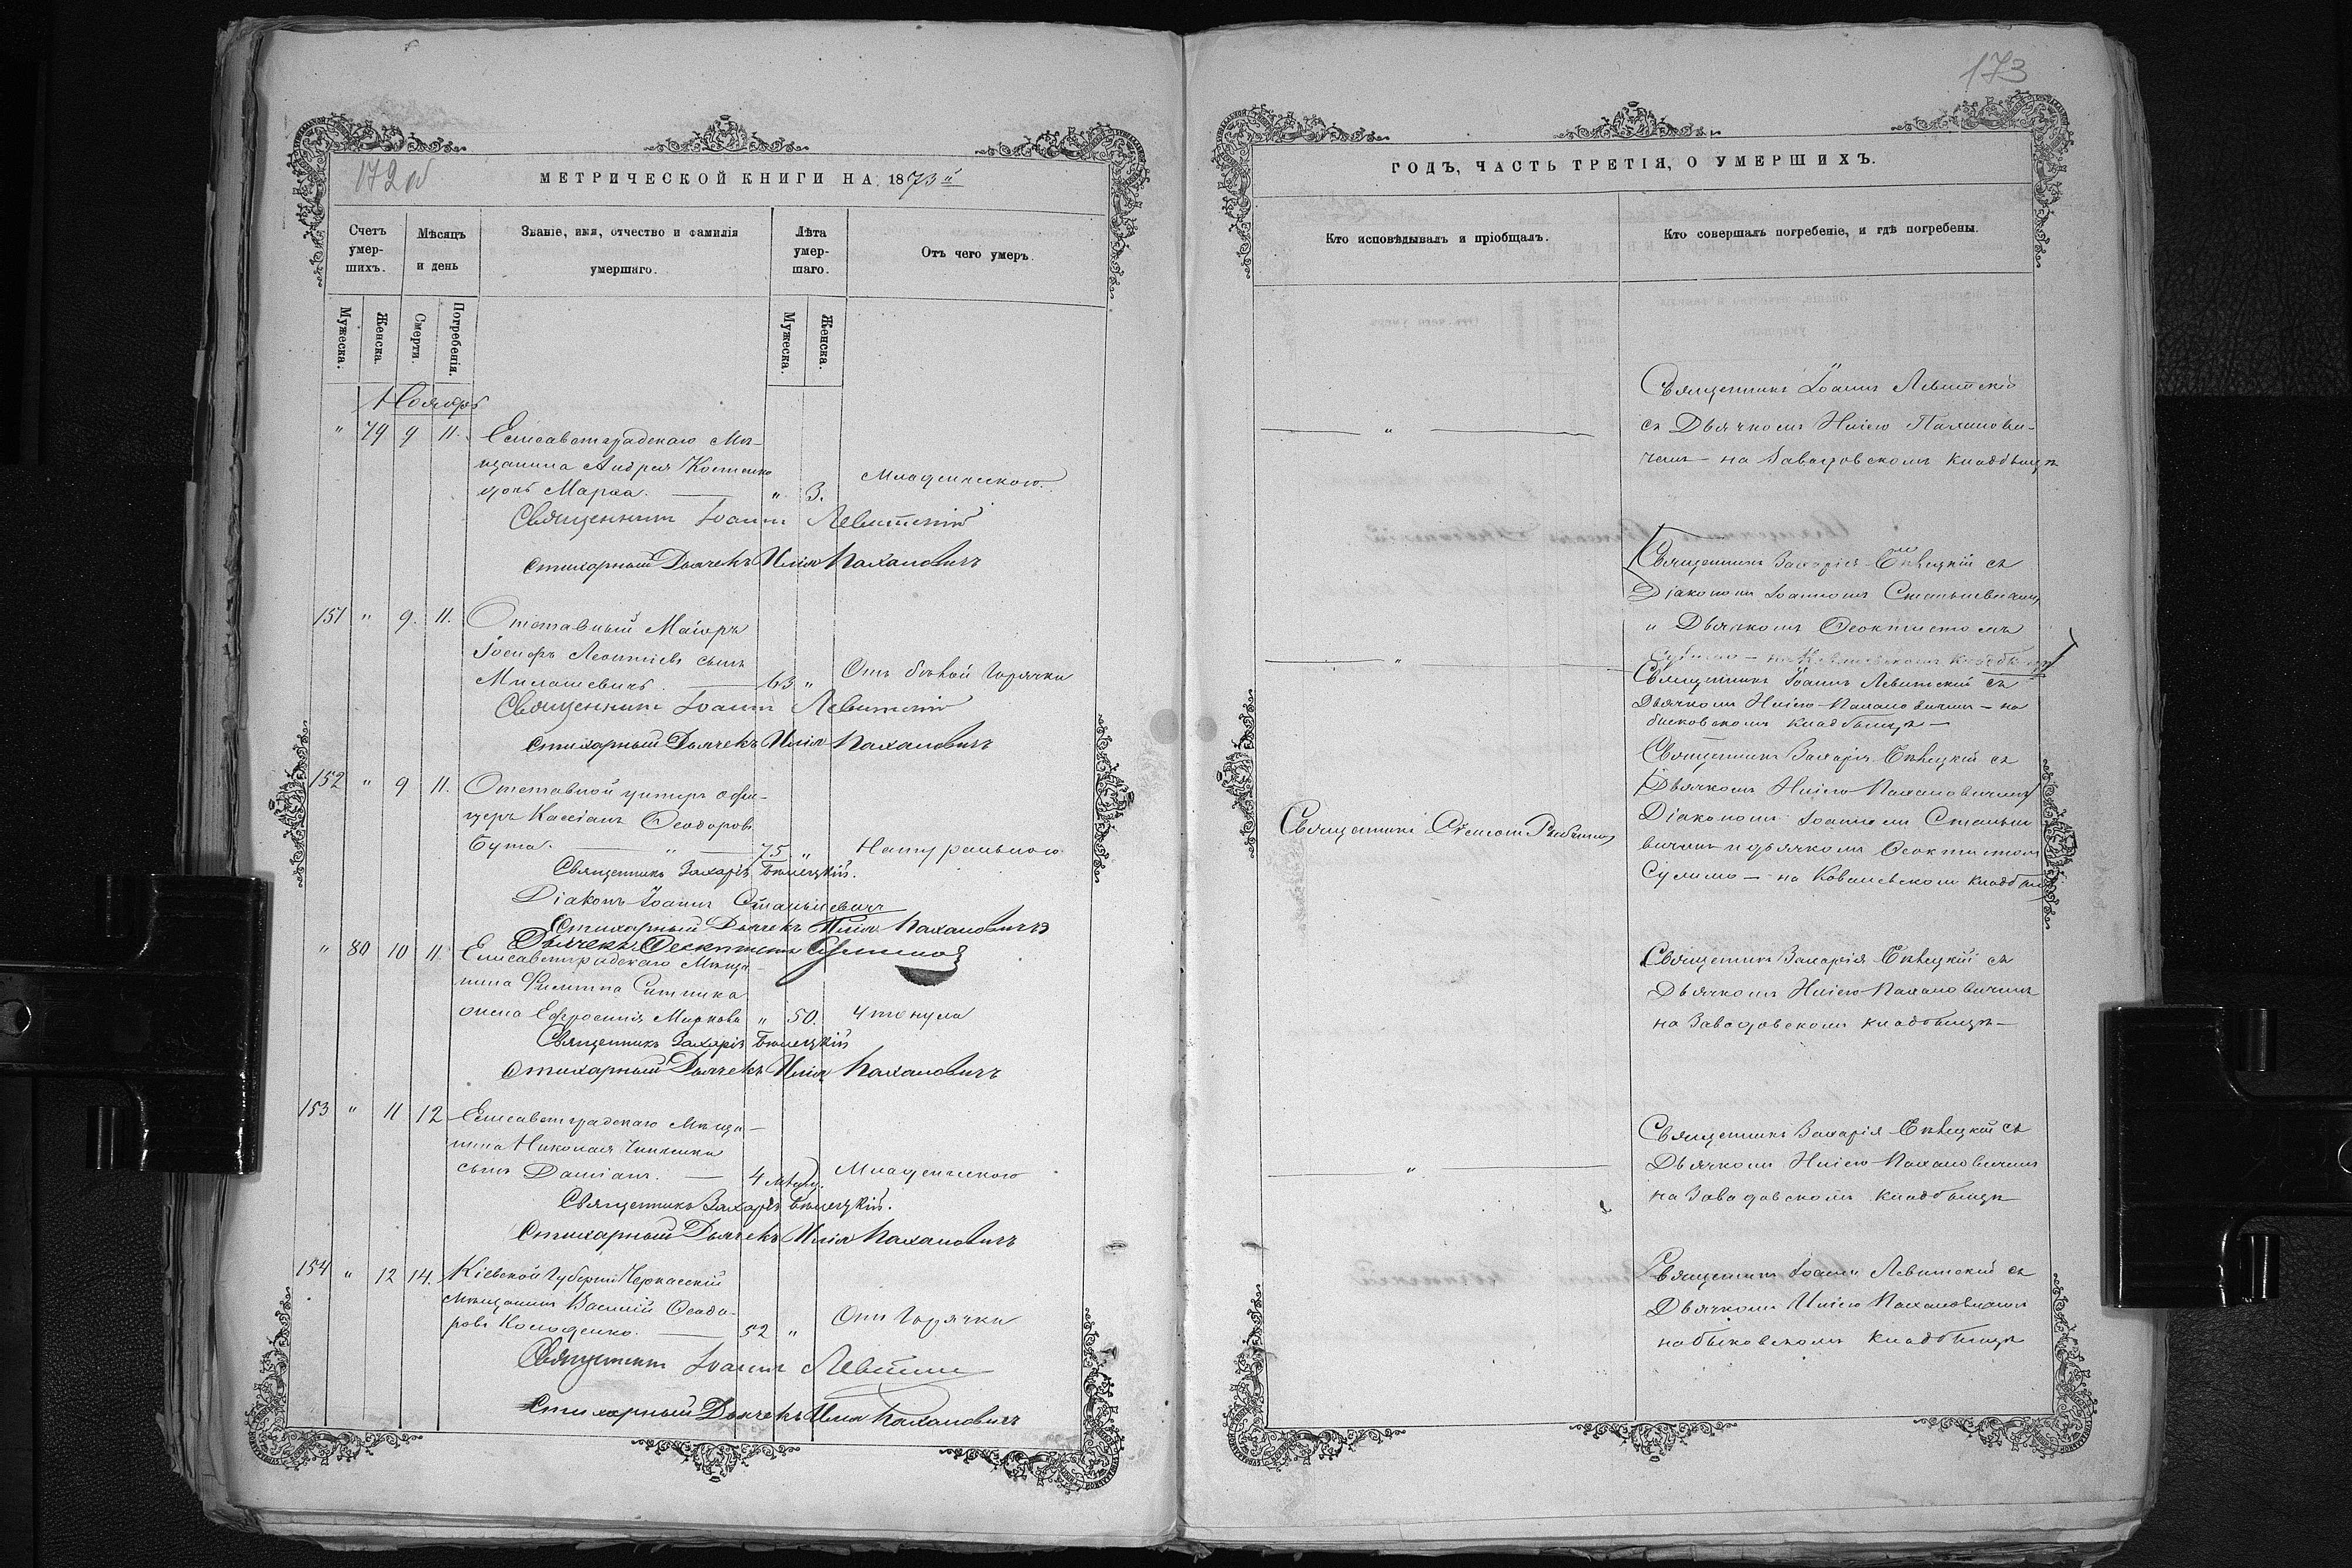 172 об
МЕТРИЧЕСКОЙ КНИГИ НА 1873 й
Счетъ умер-шихъ.
Мѣсяцъ и день
Званіе, имя, отчество и фамилія умершаго.
Лѣта умер-шаго.
Отъ чего умеръ.
Мужеска.
Женска.
Смерти.
Погребенія.
Мужеска.
Женска.
Ноябрь
" 79 9 11. Елисаветградскаго Мѣ-
щанина Андрея Костенко
дочь Марѳа. " 3. Младенческою.
Священникъ Іоаннъ Левитскій
Стихарный Дьячекъ Илія Пахаловичъ
151 " 9. 11. Отставный Маіоръ
Іосифъ Леонтіевъ сынъ
Милашевичъ. 63 " Отъ бѣлой Горячки
Священникъ Іоаннъ Левитскій
Стихарный Дьячекъ Илія Пахаловичъ
152 " 9 11. Отставной унтеръ офи-
церъ Кассіанъ Ѳеодоровъ
Бута. " 75 " Натуральною
Священникъ Захарія Бѣлецкій.
Діаконъ Іоаннъ Станиевичъ
Стихарный Дьячекъ Илія Пахаловичъ
Дьячекъ Ѳеоктистъ Сулима
" 80 10 11. Елисаветградскаго Мѣща-
нина Филиппа Ситника
жена Ефросинія Маркова " 50. Утонула
Священникъ Захарія Бѣлецкій
Стихарный Дьячекъ Илія Пахаловичъ
153 " 11 12 Елисаветградскаго Мѣща-
нина Николая
сынъ Даміанъ. 4 мѣсяц. Младенческою
Священникъ Захарія Бѣлецкій.
Стихарный Дьячекъ Илія Пахаловичъ
154 " 12 14. Кіевской Губерніи Черкасскій
Мѣщанинъ Василій Ѳеодо-
ровъ Колоденко. 52 " Отъ Горячки
Священникъ Іоаннъ Левитскій
Стихарный Дьячекъ Илія Пахаловичъ
173
ГОДЪ, ЧАСТЬ ТРЕТІЯ, О УМЕРШИХЪ.
Кто исповѣдывалъ и пріобщалъ.
Кто совершалъ погребеніе, и гдѣ погребены.
Священникъ Іоаннъ Левитскій
" съ Дьячкомъ Иліею Пахалови-
чемъ на Завадовскомъ кладбищѣ
Священникъ Захарія Бѣлецкій съ
Діакономъ Іоанномъ Станиевичемъ
и Дьячкомъ Ѳеоктистомъ
" Сулимо – на Ковалевскомъ кладбищѣ
Священникъ Іоаннъ Левитскій съ
Дьячкомъ Иліею Пахаловичемъ – на
быковскомъ кладбищѣ –
Священникъ Захарія Бѣлецкій съ
Дьячкомъ Иліею Пахаловичемъ
Священникъ Діакономъ Іоанномъ Стание-
вичемъ и дьячкомъ Ѳеоктистом
Сулимо – на Ковалевском кладбищѣ
Священникъ Захарія Бѣлецкій съ
Дьячкомъ Иліею Пахаловичемъ
на Завадовскомъ кладбищѣ –
Священникъ Захарія Бѣлецкій съ
" Дьячкомъ Иліею Пахаловичемъ
на Завадовскомъ кладбищѣ
Священникъ Іоаннъ Левитскій съ
Дьячкомъ Иліею Пахаловичемъ
на быковскомъ кладбищѣ